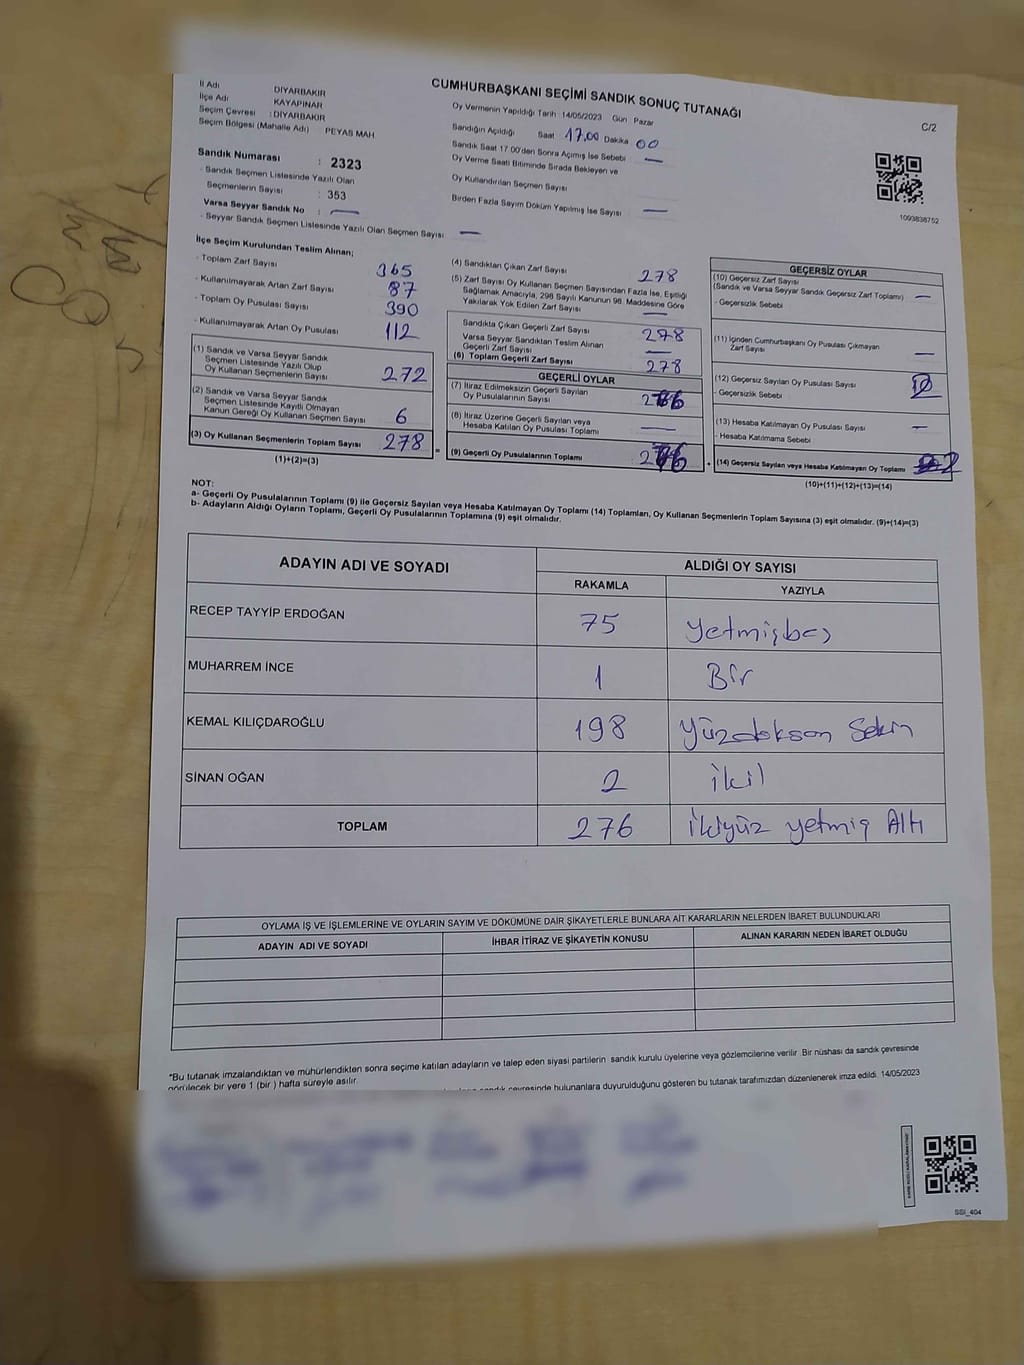 CUMHURBAŞKANI SEÇİMİ SANDIK SONUÇ TUTANAĞI
C/2
İl Adı DİYARBAKIR
İlçe Adı KAYAPINAR
Seçim Çevresi : DİYARBAKIR
Seçim Bölgesi (Mahalle Adı) PEYAS MAH
Oy Vermenin Yapıldığı Tarih 14/05/2023 Gün Pazar
Sandığın Açıldığı Saat 17.00 Dakika 00
Sandık Saat 17.00'den Sonra Açılmış İse Sebebi —
Oy Verme Saati Bitiminde Sırada Bekleyen ve
Oy Kullandırılan Seçmen Sayısı
Birden Fazla Sayım Döküm Yapılmış İse Sayısı —
1093838752
Sandık Numarası : 2323
- Sandık Seçmen Listesinde Yazılı Olan
Seçmenlerin Sayısı : 353
Varsa Seyyar Sandık No : —
- Seyyar Sandık Seçmen Listesinde Yazılı Olan Seçmen Sayısı —
İlçe Seçim Kurulundan Teslim Alınan;
- Toplam Zarf Sayısı 365
- Kullanılmayarak Artan Zarf Sayısı 87
- Toplam Oy Pusulası Sayısı 390
- Kullanılmayarak Artan Oy Pusulası 112
(1) Sandık ve Varsa Seyyar Sandık
Seçmen Listesinde Yazılı Olup
Oy Kullanan Seçmenlerin Sayısı 272
(2) Sandık ve Varsa Seyyar Sandık
Seçmen Listesinde Kayıtlı Olmayan
Kanun Gereği Oy Kullanan Seçmen Sayısı 6
(3) Oy Kullanan Seçmenlerin Toplam Sayısı 278
(1)+(2)=(3)
(4) Sandıktan Çıkan Zarf Sayısı 278
(5) Zarf Sayısı Oy Kullanan Seçmen Sayısından Fazla İse, Eşitliği
Sağlamak Amacıyla, 298 Sayılı Kanunun 98. Maddesine Göre
Yakılarak Yok Edilen Zarf Sayısı —
Sandıkta Çıkan Geçerli Zarf Sayısı 278
Varsa Seyyar Sandıktan Teslim Alınan
Geçerli Zarf Sayısı —
(6) Toplam Geçerli Zarf Sayısı 278
GEÇERLİ OYLAR
(7) İtiraz Edilmeksizin Geçerli Sayılan
Oy Pusulalarının Sayısı 276
(8) İtiraz Üzerine Geçerli Sayılan veya
Hesaba Katılan Oy Pusulası Toplamı —
(9) Geçerli Oy Pusulalarının Toplamı 276
GEÇERSİZ OYLAR
(10) Geçersiz Zarf Sayısı
(Sandık ve Varsa Seyyar Sandık Geçersiz Zarf Toplamı) —
- Geçersizlik Sebebi
(11) İçinden Cumhurbaşkanı Oy Pusulası Çıkmayan
Zarf Sayısı —
(12) Geçersiz Sayılan Oy Pusulası Sayısı
- Geçersizlik Sebebi
(13) Hesaba Katılmayan Oy Pusulası Sayısı —
- Hesaba Katılmama Sebebi
(14) Geçersiz Sayılan veya Hesaba Katılmayan Oy Toplamı 2
(10)+(11)+(12)+(13)=(14)
NOT:
a- Geçerli Oy Pusulalarının Toplamı (9) ile Geçersiz Sayılan veya Hesaba Katılmayan Oy Toplamı (14) Toplamları, Oy Kullanan Seçmenlerin Toplam Sayısına (3) eşit olmalıdır. (9)+(14)=(3)
b- Adayların Aldığı Oyların Toplamı, Geçerli Oy Pusulalarının Toplamına (9) eşit olmalıdır.
ADAYIN ADI VE SOYADI ALDIĞI OY SAYISI
RAKAMLA YAZIYLA
RECEP TAYYİP ERDOĞAN 75 Yetmişbeş
MUHARREM İNCE 1 Bir
KEMAL KILIÇDAROĞLU 198 Yüzdokson Sekin
SİNAN OĞAN 2 iki
TOPLAM 276 ikiyüz yetmiş Altı
OYLAMA İŞ VE İŞLEMLERİNE VE OYLARIN SAYIM VE DÖKÜMÜNE DAİR ŞİKAYETLERLE BUNLARA AİT KARARLARIN NELERDEN İBARET BULUNDUKLARI
ADAYIN ADI VE SOYADI İHBAR İTİRAZ VE ŞİKAYETİN KONUSU ALINAN KARARIN NEDEN İBARET OLDUĞU
*Bu tutanak imzalandıktan ve mühürlendikten sonra seçime katılan adayların ve talep eden siyasi partilerin sandık kurulu üyelerine veya gözlemcilerine verilir. Bir nüshası da sandık çevresinde
görülecek bir yere 1 (bir) hafta süreyle asılır.
sandık çevresinde bulunanlara duyurulduğunu gösteren bu tutanak tarafımızdan düzenlenerek imza edildi. 14/05/2023
SSİ_404